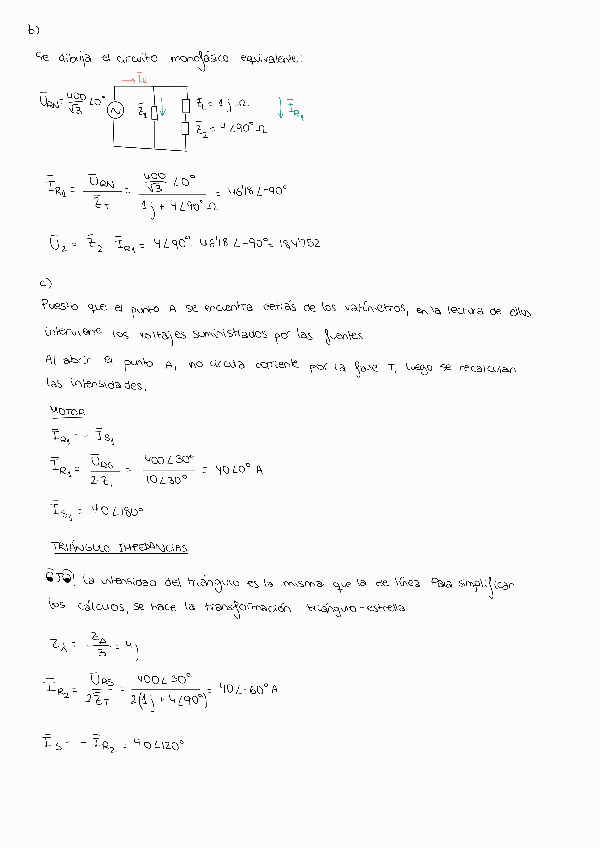 b)
Se dibuja el circuito monofásico equivalente:
I̅R
U̅RN = 400/√3 ∠0° Z̅1 Z̅L = 1j Ω I̅R1
Z̅2 = 4∠90° Ω
I̅R1 = U̅RN / Z̅T = (400/√3 ∠0°) / (1j + 4∠90° Ω) = 46'18 ∠-90°
U̅2 = Z̅2 I̅R1 = 4∠90° 46'18 ∠-90° = 184'752
c)
Puesto que el punto A se encuentra detrás de los vatímetros, en la lectura de ellos
intervienen los voltajes suministrados por las fuentes
Al abrir el punto A, no circula corriente por la fase T, luego se recalculan
las intensidades.
MOTOR
I̅R1 = - I̅S1
I̅R1 = U̅RS / 2·Z̅1 = 400∠30° / 10∠30° = 40∠0° A
I̅S1 = 40∠180°
TRIÁNGULO IMPEDANCIAS
OJO! La intensidad del triángulo es la misma que la de línea Para simplificar
los cálculos, se hace la transformación triángulo-estrella
Z⅄ = ZΔ / 3 = 4j
I̅R2 = U̅RS / 2Z̅T = 400∠30° / 2(1j + 4∠90°) = 40∠-60° A
I̅S = - I̅R2 = 40∠120°